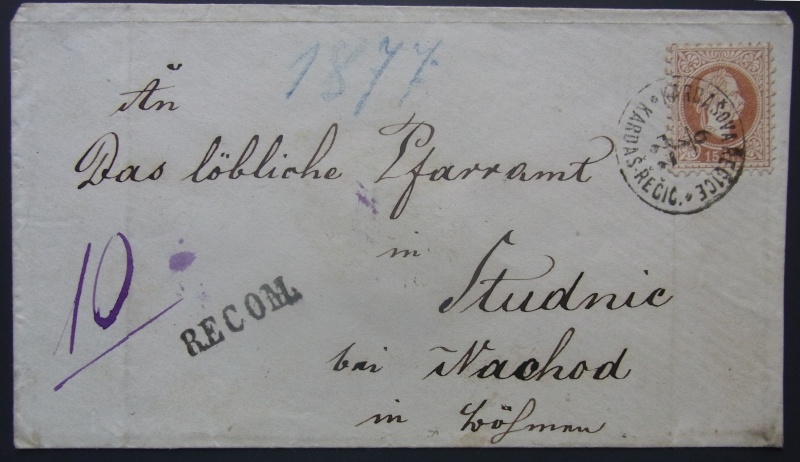 1877
An
Das löbliche Pfarramt
in
Studnic
bei Nachod
in Böhmen
10
RECOM.
KARDAŠOVA ŘEČICE
KARDAŠ-ŘEČIC.
15